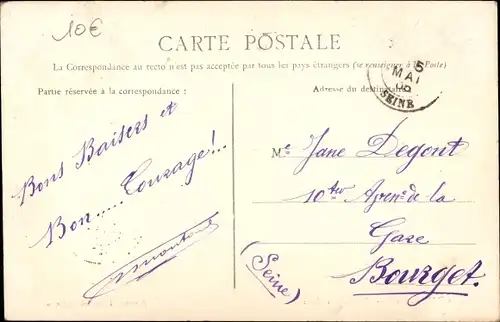 10€
CARTE POSTALE
La Correspondance au recto n'est pas acceptée par tous les pays étrangers (se renseigner à la Poste)
Partie réservée à la correspondance :
Adresse du destinataire
5
MAI
SEINE
Bons Baisers et
Bon..... Courage!...
Me Jane Degont
10 ter de la
Gare
(Seine)
Bourget.